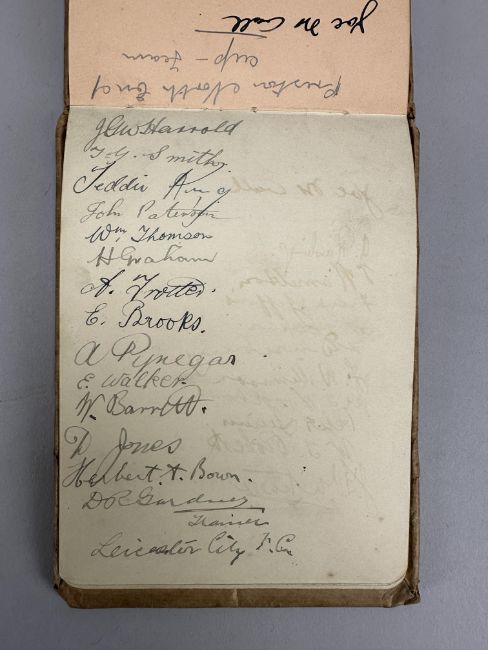 Joe Mc Call
Preston North End
cup - Team
J G W Harrold
Smith
Teddie King
John Paterson
Wm Thomson
H Graham
A. Trotter.
E. Brooks.
A Pynegar
E. Walker.
W. Barratt.
D Jones
Herbert. A. Bown.
D R Gardner
Trainer
Leicester City F. C.